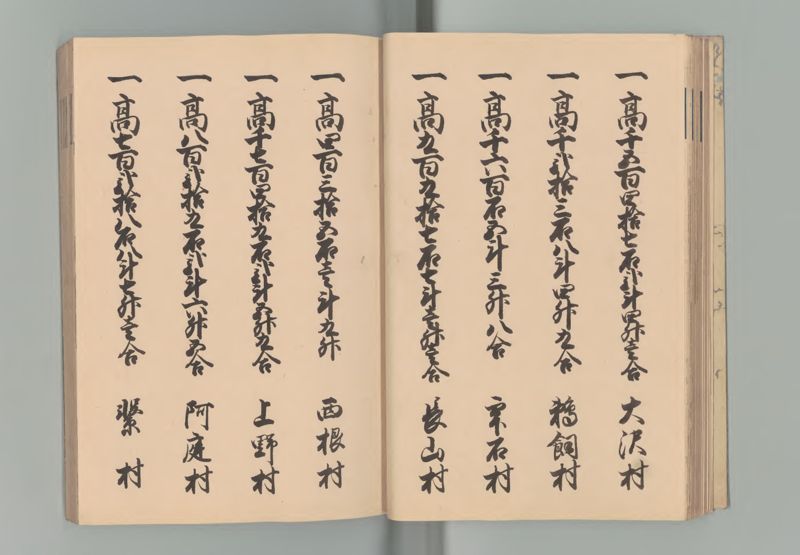 一高千五百四拾七石弐斗四升壱合 大沢村
一高千弐拾三石八斗四升九合 鵜飼村
一高千六百石五斗三升八合 雫石村
一高九百九拾七石七斗壱升壱合 長山村
一高四百三拾五石壱斗九升 西根村
一高千七百四拾九石弐斗五升九合 上野村
一高八百弐拾九石弐斗六升五合 阿庭村
一高七百弐拾八石八斗七升壱合 繋村